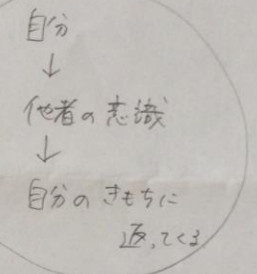 自分
↓
他者の意識
↓
自分のきもちに
返ってくる